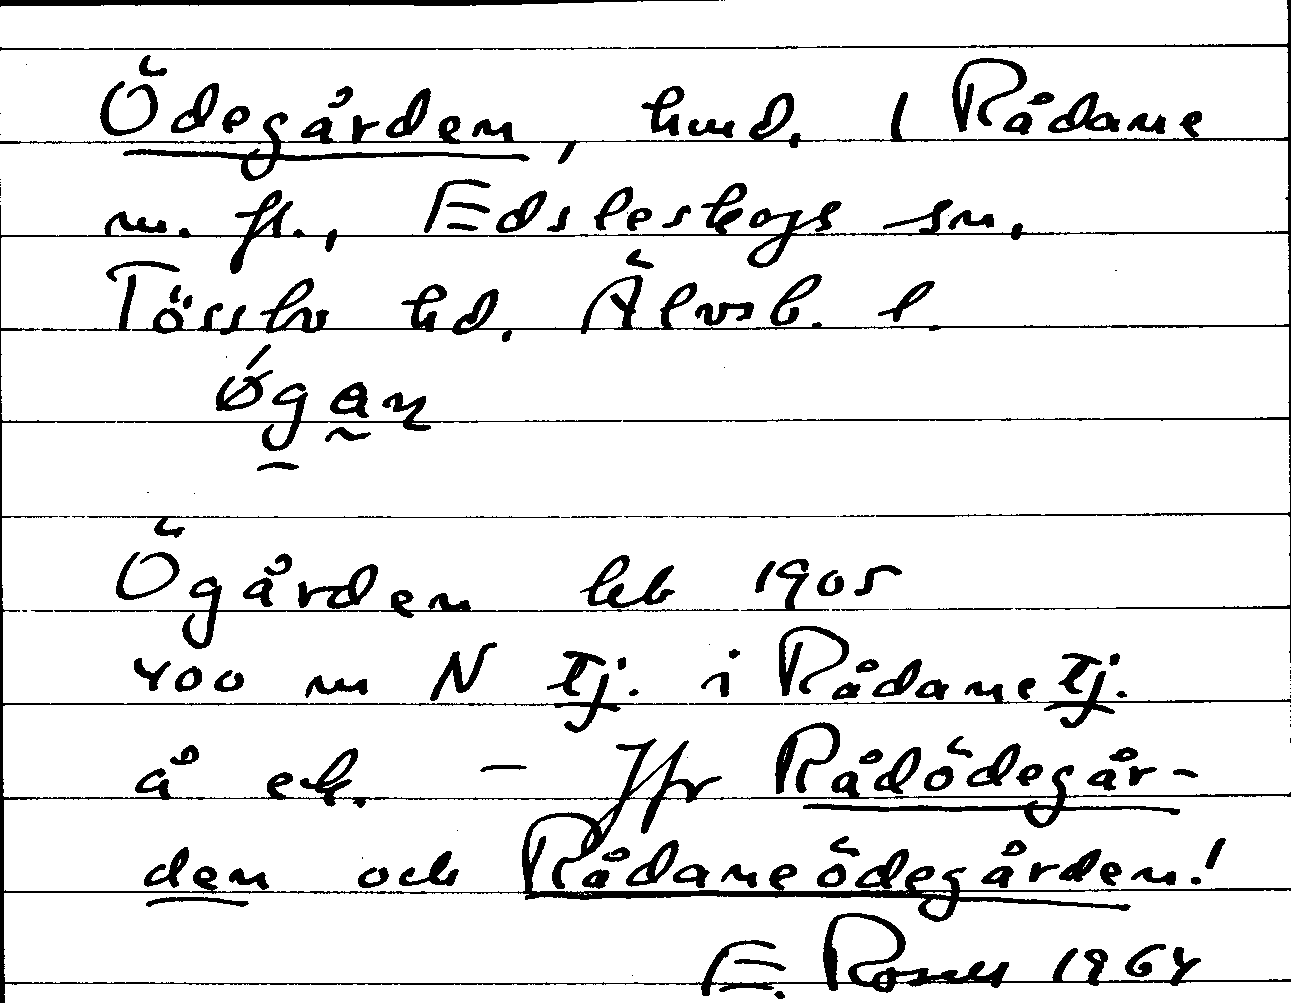 Ödegården, hmd. 1 Rådane
m. fl., Edsleskogs sn,
Tössbo hd. Älvsb. l.
ǿgan
Ögården hkb 1905
400 m N Tj. i Rådane Tj.
å ek. - Jfr Rådödegår-
den och Rådaneödegården!
E. Rosell 1964